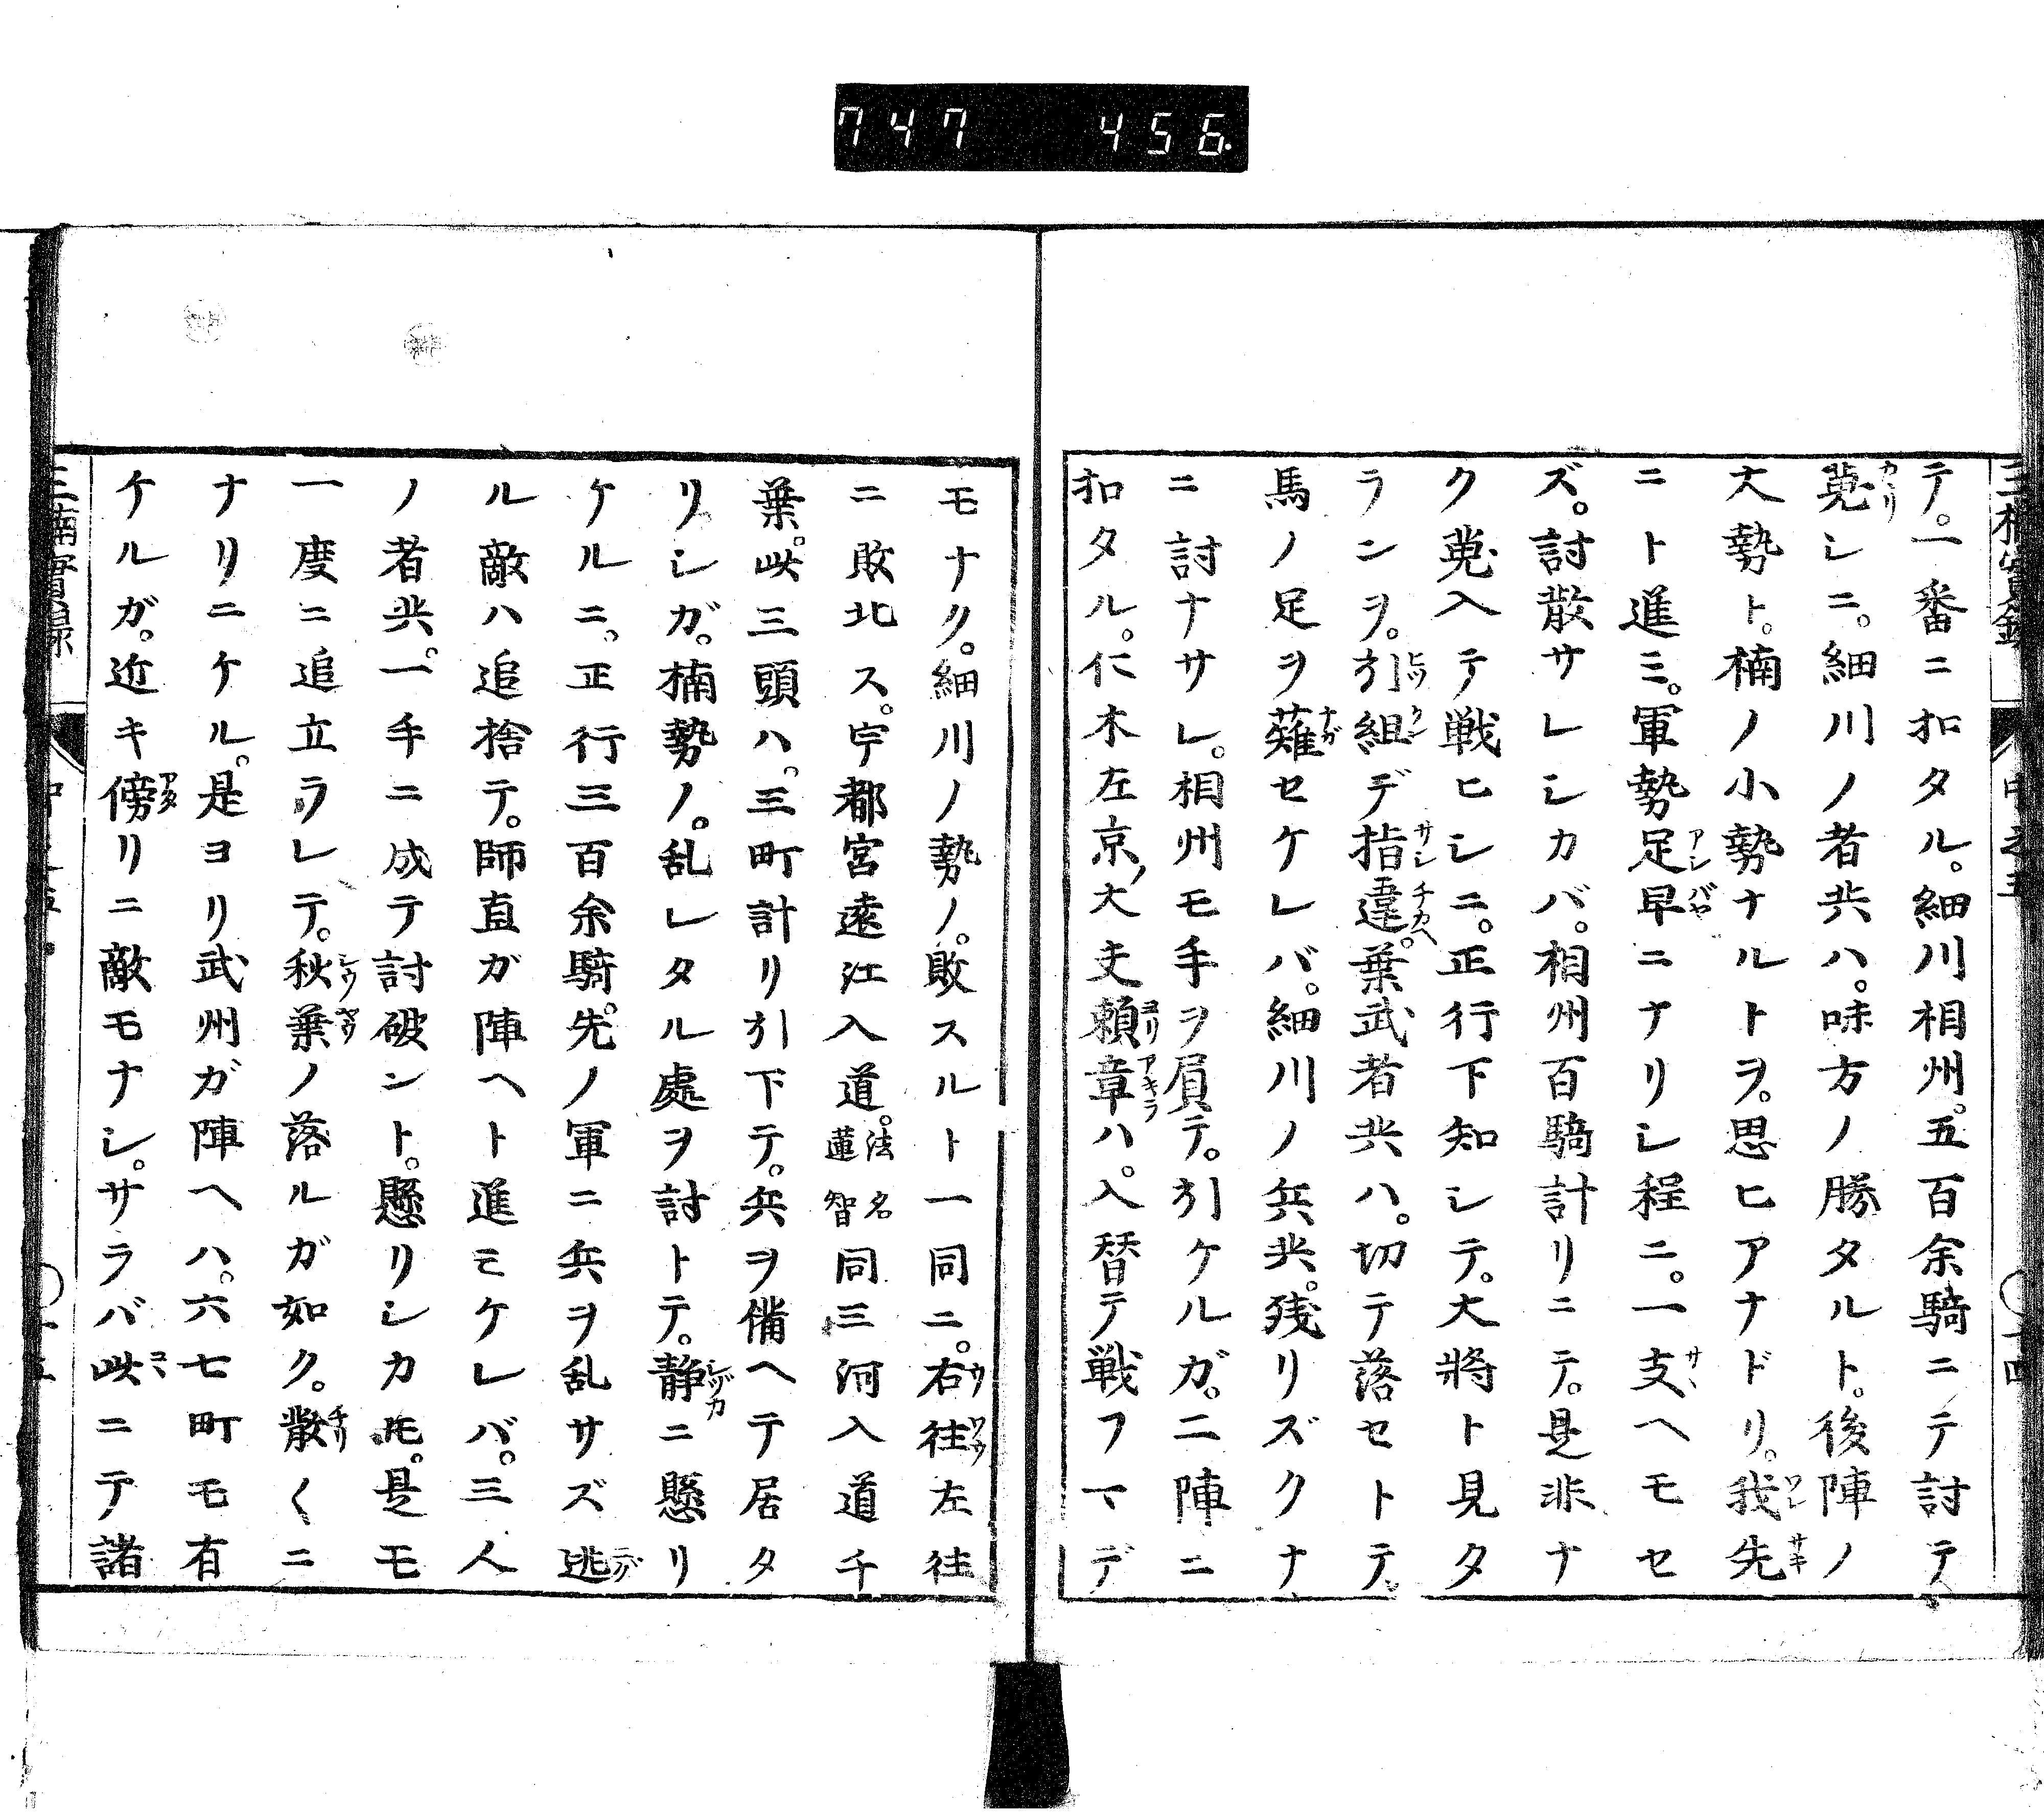 747 456.
テ。一番ニ扣タル。細川相州。五百余騎ニテ討テ
蒐レシニ。細川ノ者共ハ。味方ノ勝タルト。後陣ノ
大勢ト。楠ノ小勢ナルトヲ。思ヒアナドリ。我先
ニト進ミ。軍勢足早ニナリシ程ニ。一支ヘモセ
ズ。討散サレシカバ。相州百騎計リニテ。是非ナ
ク蒐入テ戦ヒシニ。正行下知シテ。大將ト見タ
ランヲ。引組デ指違。葉武者共ハ。切テ落セトテ。
馬ノ足ヲ薙セケレバ。細川ノ兵共。残リズクナ
ニ討ナサレ。相州モ手ヲ屓テ。引ケルガ。二陣ニ
扣タル。仁木左京ノ大夫頼章ハ。入替テ戦フマデ
モナク。細川ノ勢ノ。敗スルト一同ニ。右往左往
ニ敗北ス。宇都宮遠江入道。法名蓮智同三河入道千
葉。此三頭ハ。三町計リ引下テ。兵ヲ備ヘテ居タ
リシガ。楠勢ノ。乱レタル處ヲ討トテ。静ニ懸リ
ケルニ。正行三百余騎。先ノ軍ニ兵ヲ乱サズ逃
ル敵ハ追捨テ。師直ガ陣ヘト進ミケレバ。三人
ノ者共。一手ニ成テ討破ント。懸リシカ𪜈。是モ
一度ニ追立ラレテ。秋葉ノ落ルガ如ク。散〱ニ
ナリニケル。是ヨリ武州ガ陣ヘハ。六七町モ有
ケルガ。近キ傍リニ敵モナシ。サラバ此ニテ諸